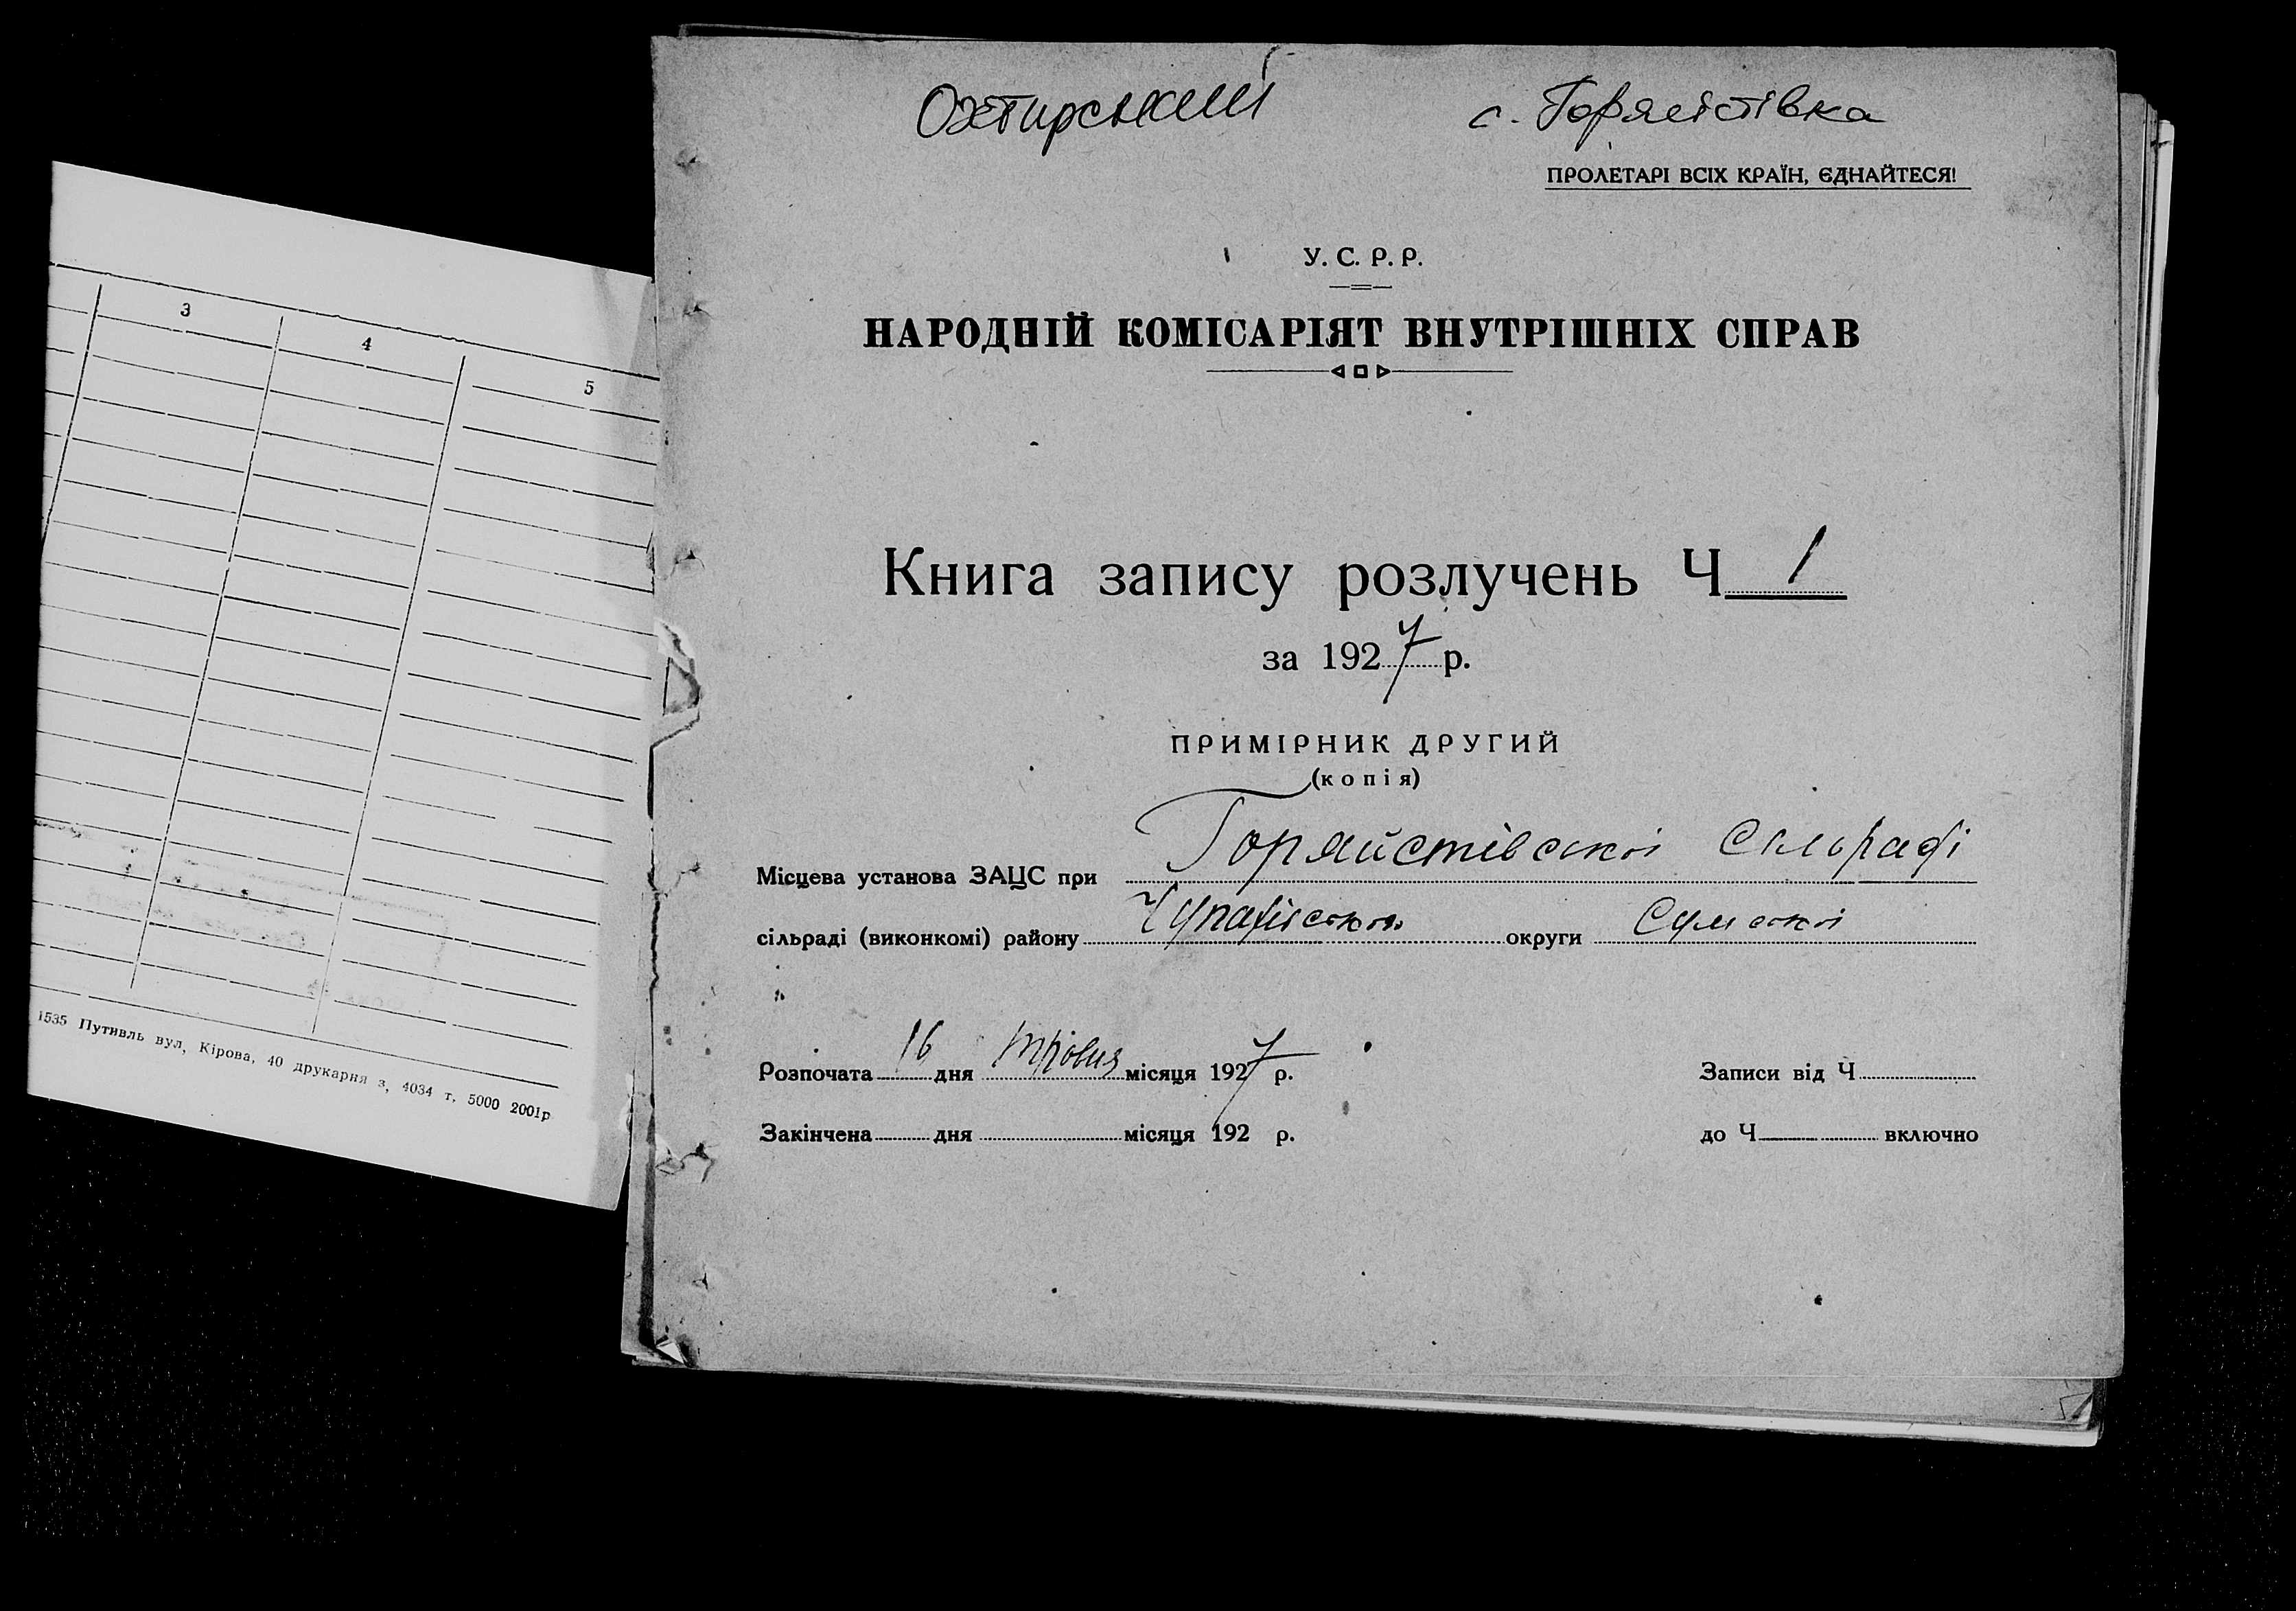 Охтирський
с. Горяйстівка
ПРОЛЕТАРІ ВСІХ КРАЇН, ЄДНАЙТЕСЯ!
У. С. Р. Р.
НАРОДНІЙ КОМІСАРІЯТ ВНУТРІШНІХ СПРАВ
Книга запису розлучень Ч 1
за 1927 р.
ПРИМІРНИК ДРУГИЙ
(копія)
Місцева установа ЗАЦС при Горяйстівській Сільраді
сільраді (виконкомі) району округи Сумської
Розпочата 16 дня місяця 1927 р.
Записи від Ч
Закінчена дня місяця 192 р.
до Ч включно
3
4
5
1535 Путивль вул, Кірова, 40 друкарня з, 4034 т, 5000 2001р